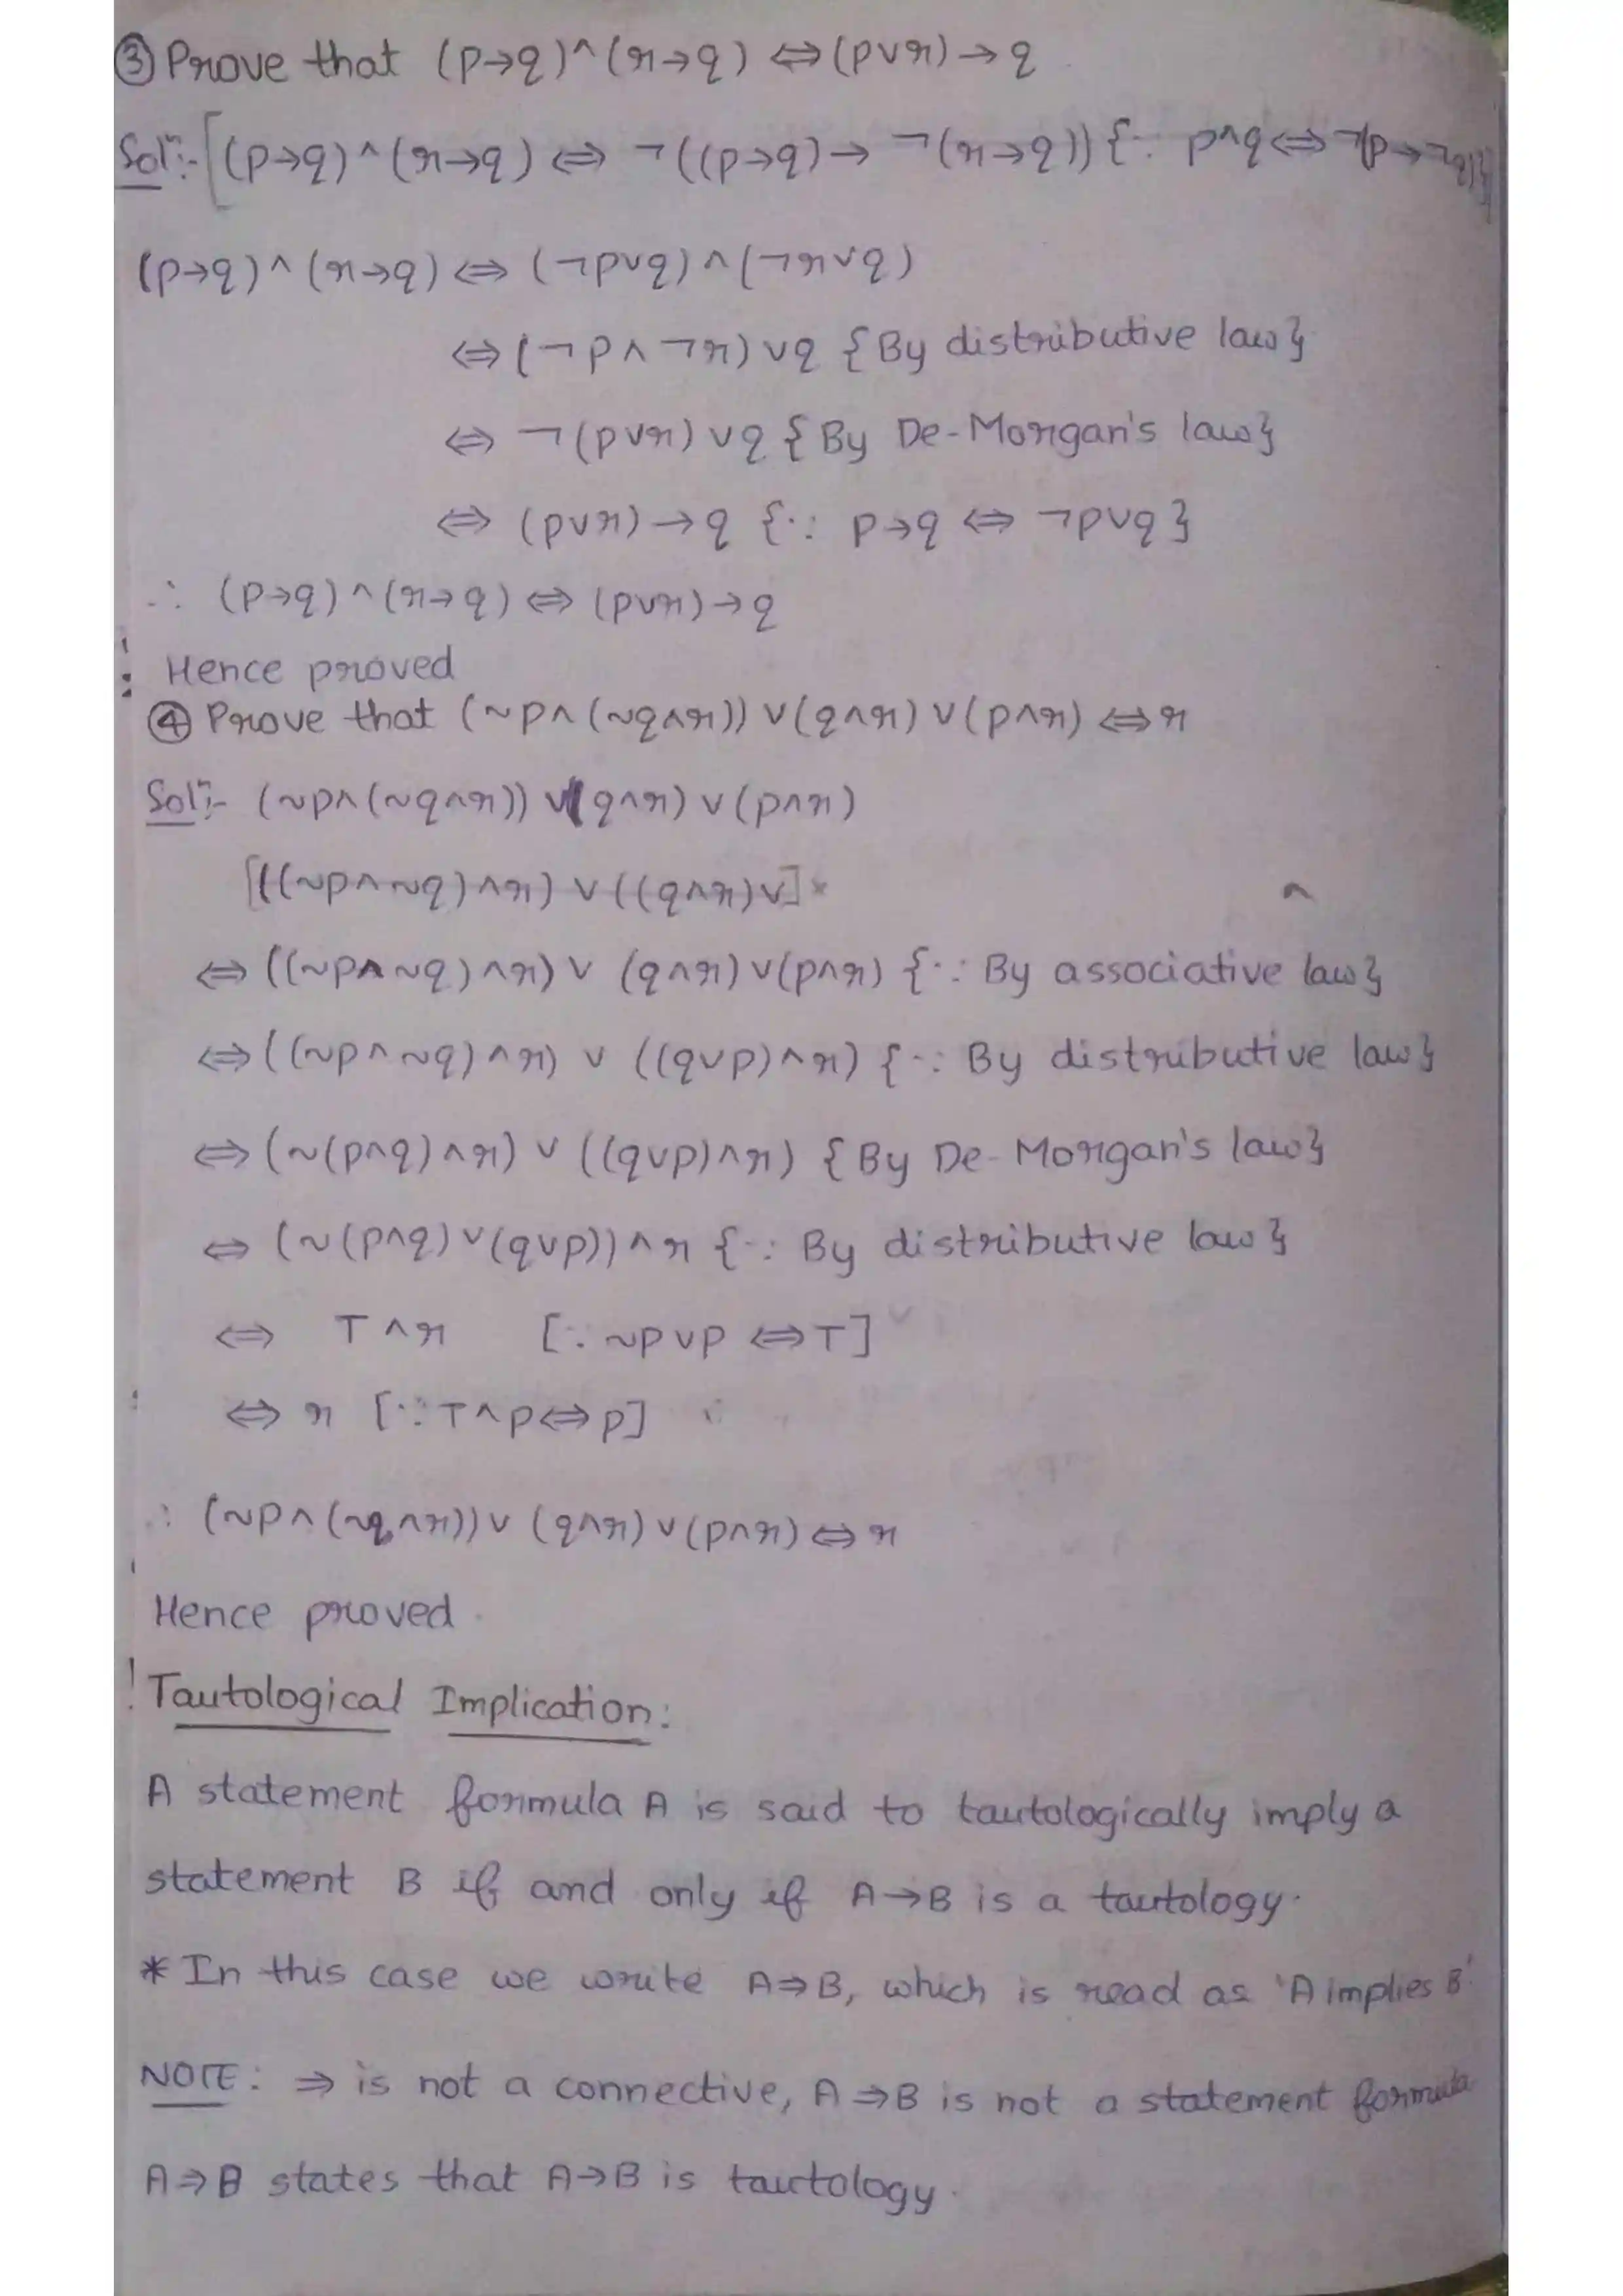 ③ Prove that (p→q)^(r→q) ⇔ (p∨r)→q
Solⁿ:- [(p→q)^(r→q) ⇔ ¬((p→q)→ ¬(r→q)) {∵ p^q⇔¬(p→¬q)}]
(p→q)^(r→q) ⇔ (¬p∨q)∧(¬r∨q)
⇔ (¬p∧¬r)∨q {By distributive law}
⇔ ¬(p∨r)∨q {By De-Morgan's law}
⇔ (p∨r)→q {∵ p→q ⇔ ¬p∨q}
∴ (p→q)^(r→q) ⇔ (p∨r)→q
Hence proved
④ Prove that (~p∧(~q∧r))∨(q∧r)∨(p∧r) ⇔ r
Solⁿ:- (~p∧(~q∧r)) ∨(q∧r)∨(p∧r)
[((~p∧~q)∧r) ∨ ((q∧r)∨]×
⇔ ((~p∧~q)∧r)∨ (q∧r)∨(p∧r) {∵ By associative law}
⇔ ((~p∧~q)∧r) ∨ ((q∨p)∧r) {∵ By distributive law}
⇔ (~(p∧q)∧r) ∨ ((q∨p)∧r) {By De-Morgan's law}
⇔ (~(p∧q)∨(q∨p))∧r {∵ By distributive law}
⇔ T∧r [∵ ~p∨p ⇔ T]
⇔ r [∵ T∧p⇔p]
∴ (~p∧(~q∧r))∨ (q∧r)∨(p∧r) ⇔ r
Hence proved.
Tautological Implication:
A statement formula A is said to tautologically imply a
statement B if and only if A→B is a tautology.
* In this case we write A⇒B, which is read as 'A implies B'
NOTE: ⇒ is not a connective, A⇒B is not a statement formula
A⇒B states that A→B is tautology.